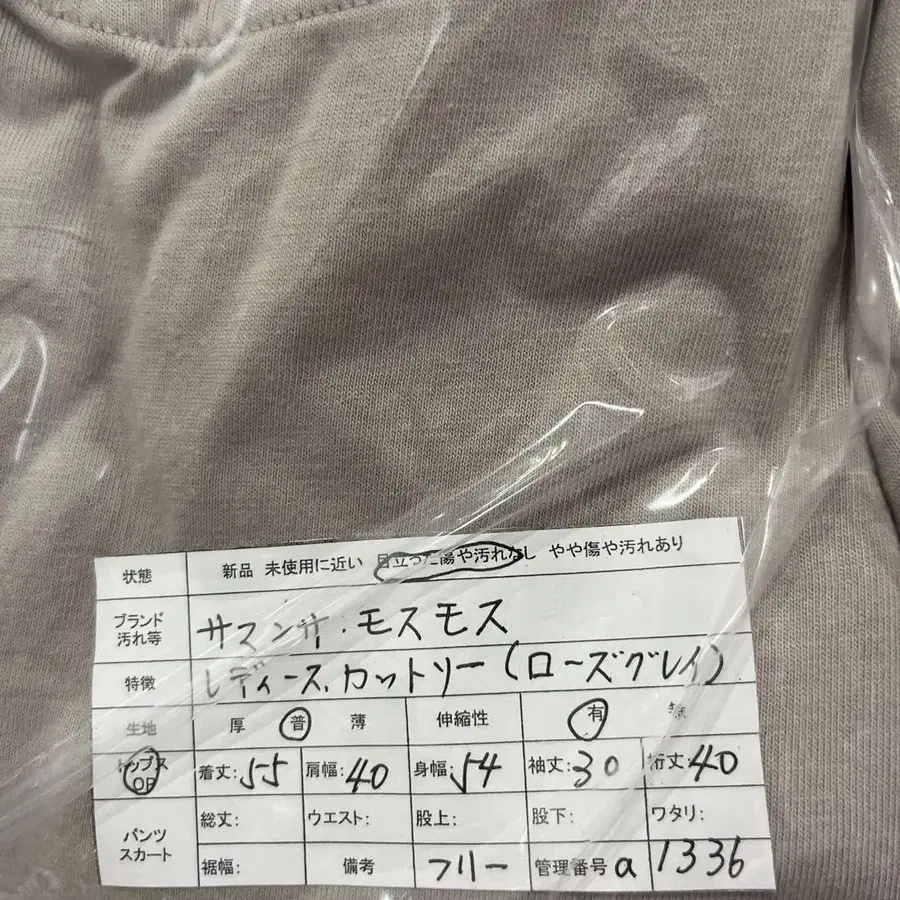 状態 新品 未使用に近い 目立った傷や汚れなし やや傷や汚れあり
ブランド 汚れ等 サマンサ.モスモス
特徴 レディース.カットソー(ローズグレイ)
生地 厚 普 薄 伸縮性 有 無
トップス OP 着丈:55 肩幅:40 身幅:54 袖丈:30 裄丈:40
パンツ スカート 総丈: ウエスト: 股上: 股下: ワタリ:
裾幅: 備考 フリー 管理番号 a 1336